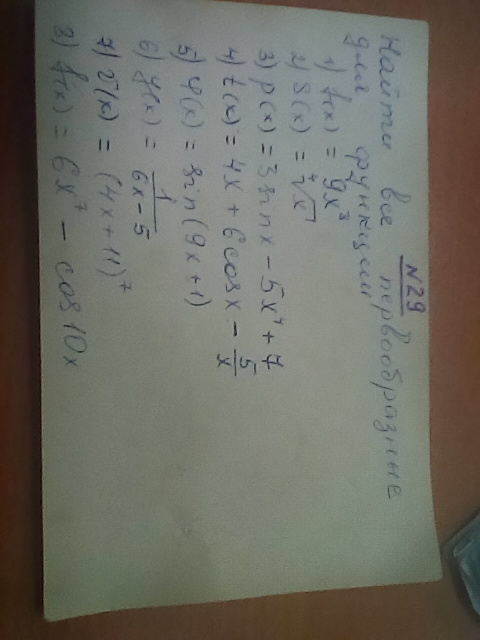 N29
Найти все первообразные
для функции
1) f(x) = 9x³
2) S(x) = ⁴√x
3) p(x) = 3 sin x - 5x⁴ + 7
4) t(x) = 4x + 6 cos x - 5/x
5) φ(x) = sin(9x+1)
6) y(x) = 1/(6x-5)
7) v(x) = (4x+11)⁷
8) f(x) = 6x⁷ - cos 10x